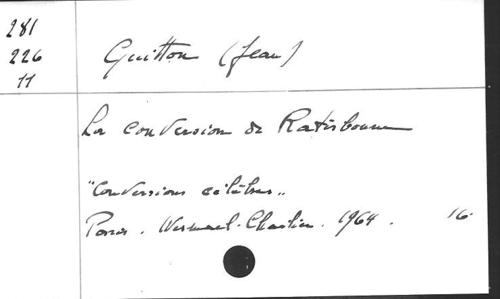 281
226
11
Guitton (Jean)
La conversion de Ratisbonne
"Conversions célèbres"
Paris. Wesmael-Charlier. 1964. 16°